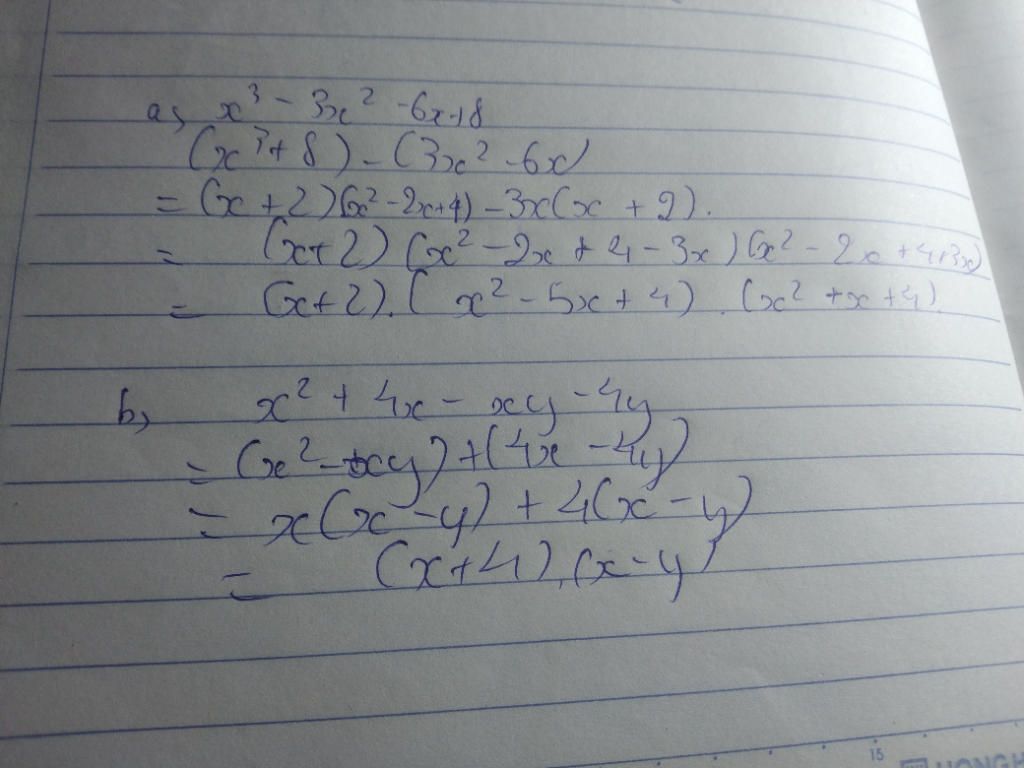 a, x³ - 3x² - 6x+8
(x³ + 8) - (3x² - 6x)
= (x + 2)(x² - 2x+4) - 3x(x + 2).
= (x+2) (x² - 2x + 4 - 3x) (x² - 2x + 4+3x)
= (x+2). ( x² - 5x + 4) . (x² + x + 4).
b, x² + 4x - xy - 4y
= (x² - xy) + (4x - 4y)
= x(x - y) + 4(x - y)
= (x+4). (x - y)
15